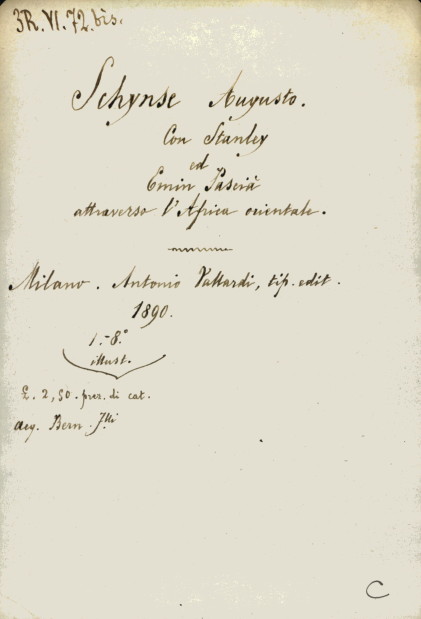 3R.VI.72.bis.
Schynse Augusto.
Con Stanley
ed
Emin Pascià
attraverso l'Africa orientale.
Milano. Antonio Vallardi, tip. edit.
1890.
1.-8.°
illust.
£. 2,50. prez. di cat.
acq. Bern. flli
C